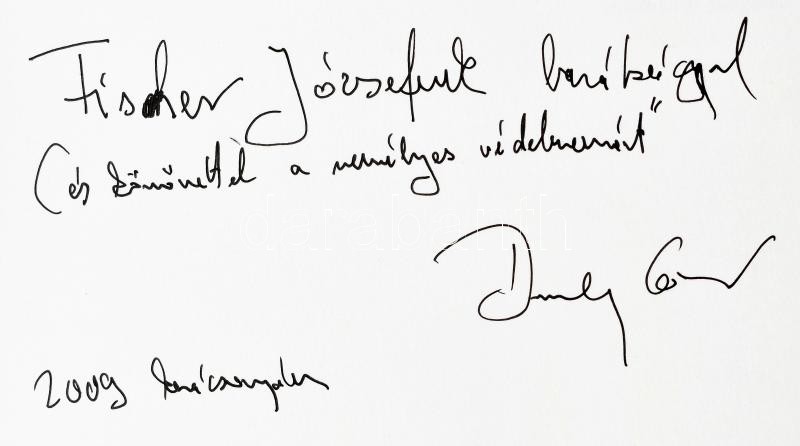 Fischer Józsefnek barátsággal
(és köszönettel a személyes védelemért"
darabanth
2009 karácsonyán